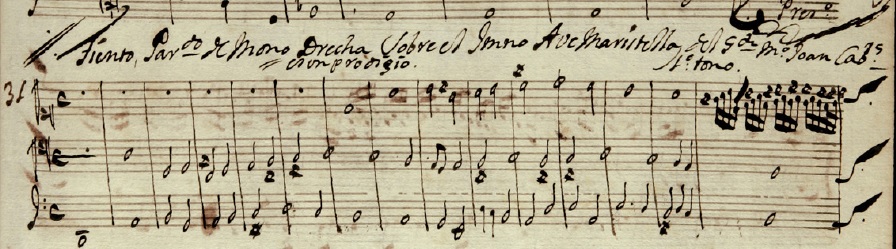 Tiento, Par.do de Mano Drecha Sobre el Imno Ave Maristella del Gdr. Mo. Joan Cabs.
con prodigio. 1o. tono.
31